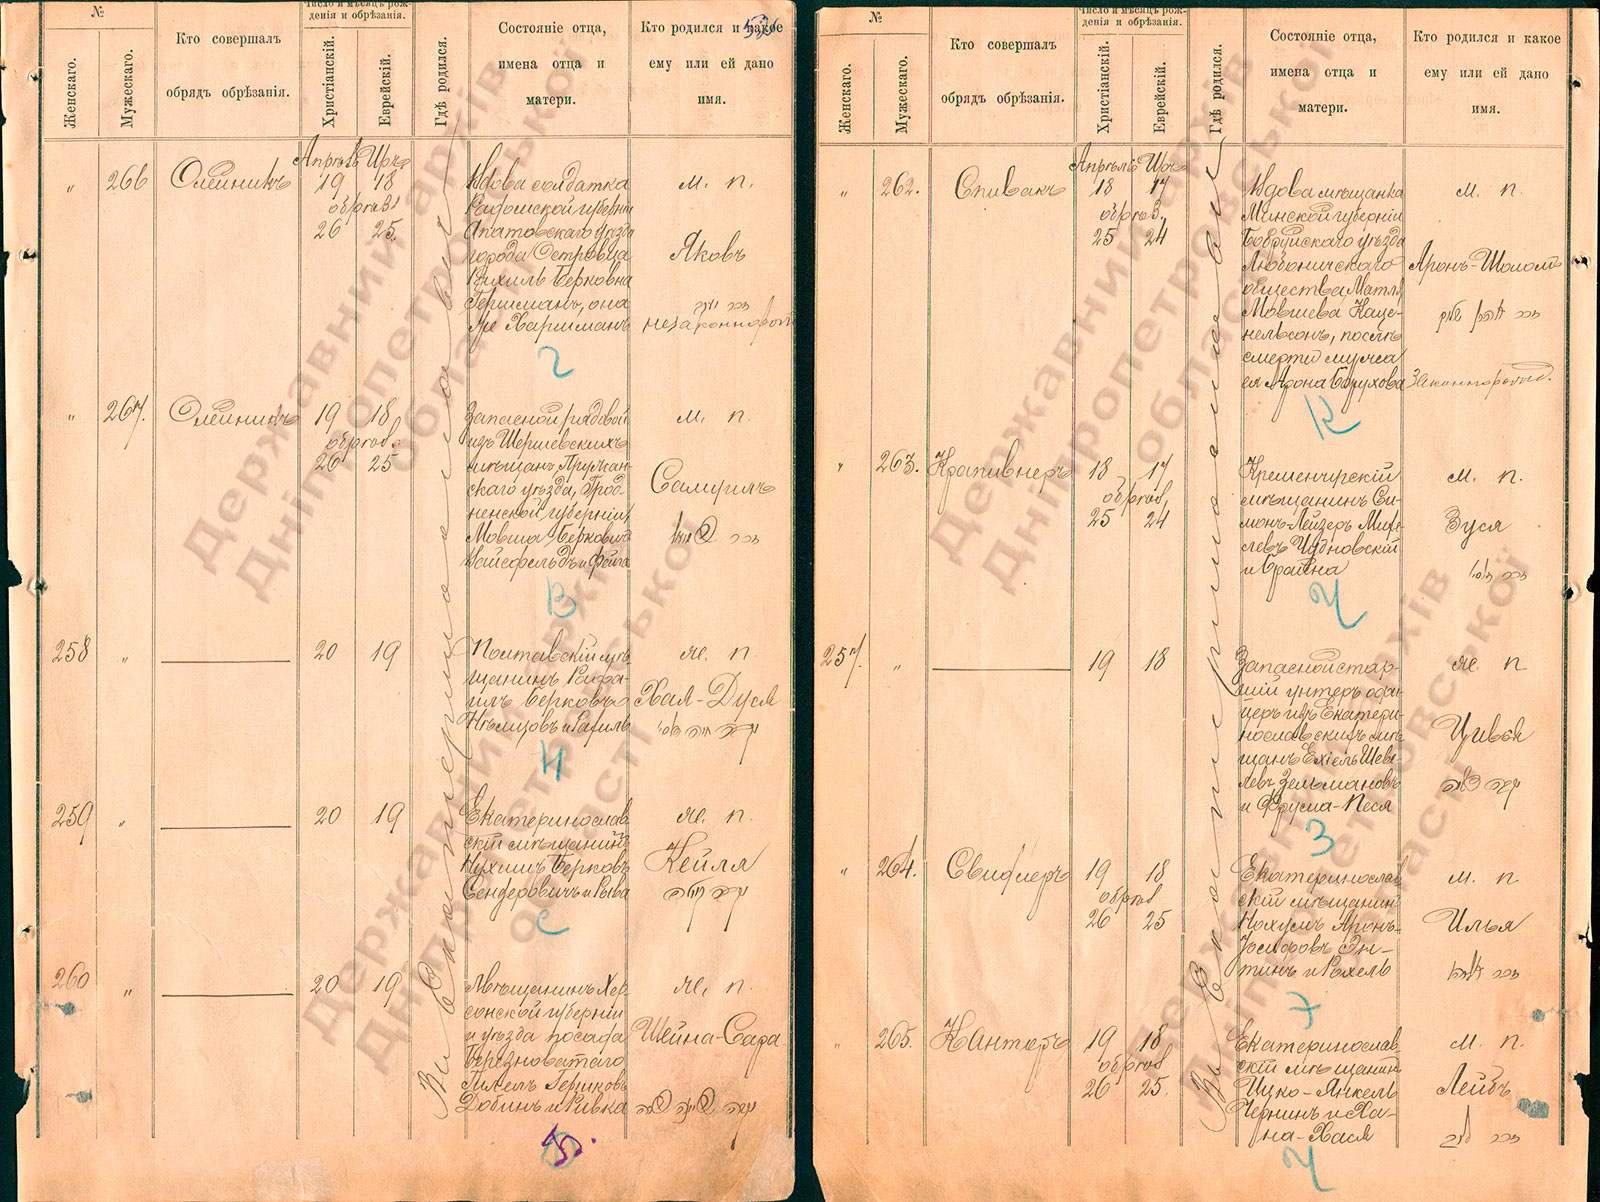 №
Женскаго.
Мужескаго.
Кто совершалъ
обрядъ обрѣзанія.
Число и мѣсяцъ рож-
денія и обрѣзанія.
Христіанскій.
Еврейскій.
Гдѣ родился.
Состояніе отца,
имена отца и
матери.
Кто родился и какое
ему или ей дано
имя.
Въ Екатеринославѣ
" 266 Олейникъ
Апрѣль Иръ
19 18
обрѣз.
26 25.
Вдова солдатка
Радомской губерніи
Апатовскаго уѣзда
города Островца
Рахиль Берковна
Гершманъ, она
же Харшманъ
м. п.
Яковъ
незаконнорожд.
Г
" 267. Олейникъ
19 18
обрѣзов.
26 25
Запасной рядовой
изъ Шершевскихъ
мѣщанъ Пружан-
скаго уѣзда, Грод-
ненской губерніи
Мовша Берковичъ
Вайсфельдъ и Фейга
м. п.
Самуилъ
В
258 "
20 19
Полтавскій мѣ-
щанинъ Рафа-
илъ Берковъ
Нѣмцовъ и Рахиль
ж. п
Хая-Дуся
Н
259 "
20 19
Екатеринослав
скій мѣщанинъ
Нухимъ Берковъ
Сендеровичъ и Рыва
ж. п.
Кейля
С
260 "
20 19
Мѣщанинъ Хер-
сонской губерніи
и уѣзда посада
Березноватаго
Гилель Гершковъ
Добинъ и Ривка
ж. п.
Шейна-Сара
№
Женскаго.
Мужескаго.
Кто совершалъ
обрядъ обрѣзанія.
Число и мѣсяцъ рож-
денія и обрѣзанія.
Христіанскій.
Еврейскій.
Гдѣ родился.
Состояніе отца,
имена отца и
матери.
Кто родился и какое
ему или ей дано
имя.
Въ Екатеринославѣ
" 262. Спивакъ
Апрѣль Иръ
18 17
обрѣз.
25 24
Вдова мѣщанка
Минской губерніи
Бобруйскаго уѣзда
Любоничскаго
общества Матля
Мовшева Каце-
нельсонъ, послѣ
смерти мужа
ея Арона Борухова
м. п.
Аронъ-Шоломъ
Законнорожд.
К
" 263. Крапивнеръ
18 17
обрѣзов.
25 24
Кременчугскій
мѣщанинъ Си-
монъ-Лейзеръ Михе-
левъ Чудновскій
и Брайна
м. п.
Зуся
חיה זוסי
Ч
257. "
19 18
Запасной стар-
шій унтеръ офи-
церъ изъ Екатери-
нославскихъ мѣ-
щанъ Ехіель Шеві-
левъ Зельмановъ
и Фрума-Песя
ж. п
Цивья
З
" 264. Свифлеръ
19 18
обрѣзов
26 25
Екатеринослав
скій мѣщанин
Нохумъ Аронъ-
Іосифовъ Эн-
тинъ и Рахель
м. п
Илья
Э
" 265. Канторъ
19 18
обрѣзов
26 25.
Екатеринослав-
скій мѣщанин
Ицко-Янкель
Чернинъ и Ха-
на-Хася
м. п.
Лейбъ
Ч
Державний архів
Дніпропетровської
області